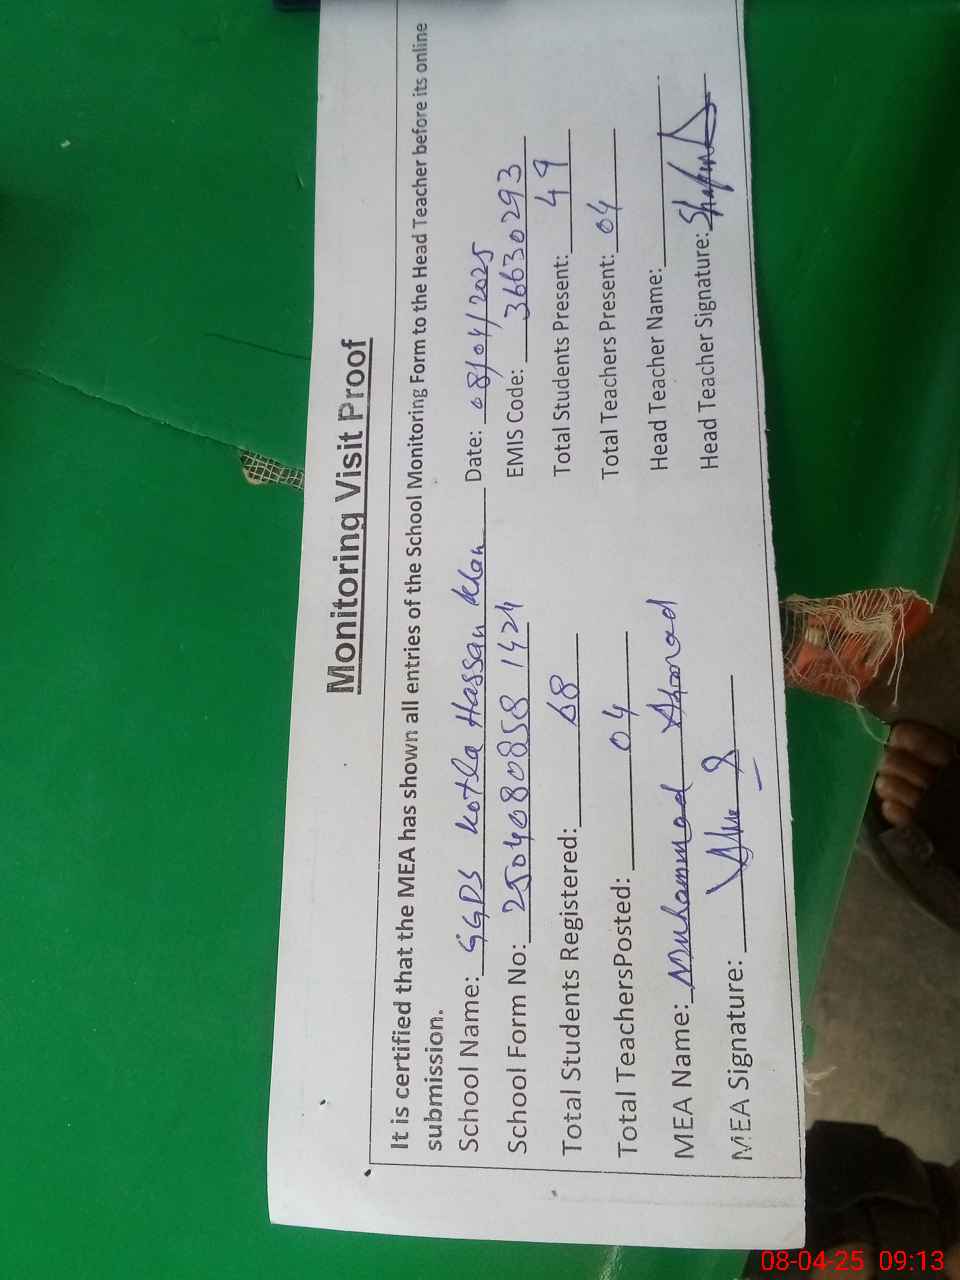 Monitoring Visit Proof
It is certified that the MEA has shown all entries of the School Monitoring Form to the Head Teacher before its online
submission.
School Name: GGPS Kotla Hassan Khan Date: 08/04/2025
School Form No: 2504080858 1424 EMIS Code: 36630293
Total Students Registered: 68 Total Students Present: 49
Total TeachersPosted: 04 Total Teachers Present: 04
MEA Name: Muhammad Ahmad Head Teacher Name:
MEA Signature: Head Teacher Signature:
08-04-25 09:13